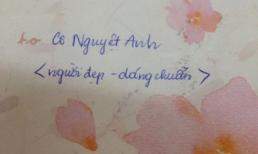 to. Cô Nguyệt Anh
<người đẹp - dáng chuẩn>